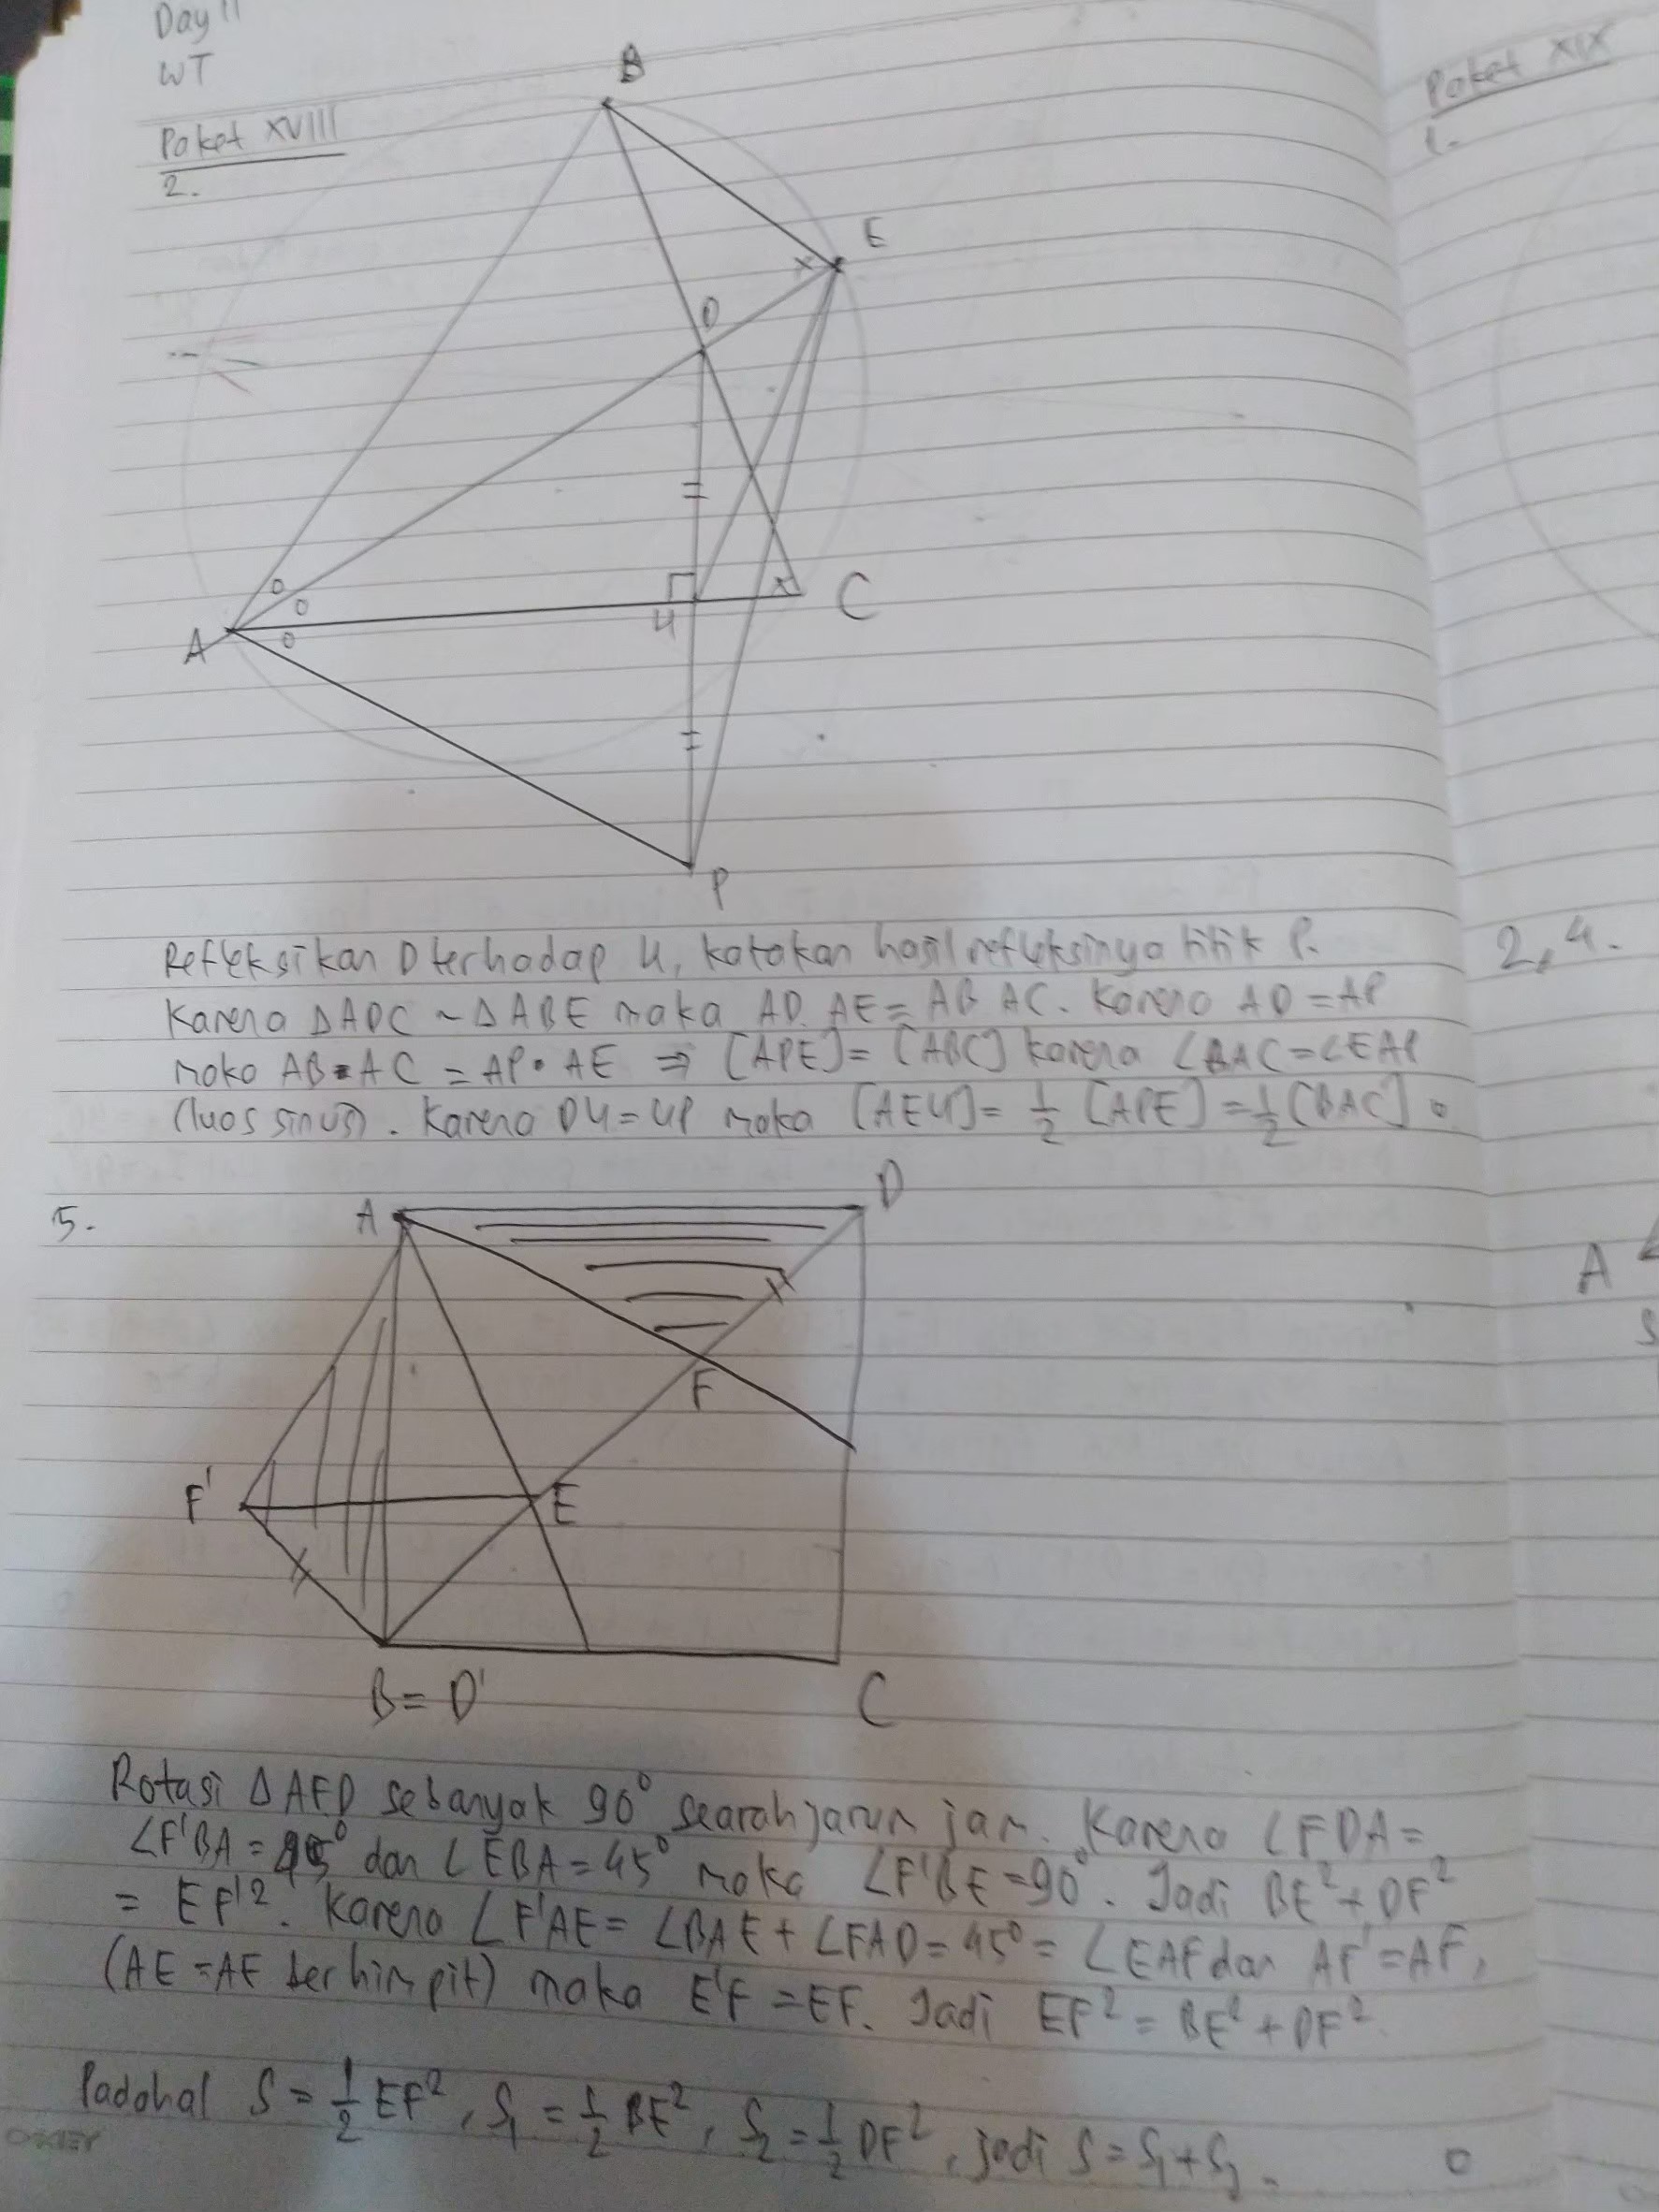 Day 11
WT
Paket XVIII
2.
B
E
D
A
H
C
P
Refleksikan D terhadap H, katakan hasil refleksinya titik P.
Karena △ADC ~ △ABE maka AD. AE = AB AC. Karena AD = AP
maka AB•AC = AP• AE ⇒ [APE] = [ABC] karena ∠BAC = ∠EAP
(luas sinus). Karena DH = HP maka [AEH] = 1/2 [APE] = 1/2 [BAC] □
5.
A
D
F
F'
E
B = D'
C
Rotasi △AFD sebanyak 90° searah jarum jam. Karena ∠FDA =
∠F'BA = 45° dan ∠EBA = 45° maka ∠F'BE = 90°. Jadi BE² + DF²
= EF'². Karena ∠F'AE = ∠BAE + ∠FAD = 45° = ∠EAF dan AF' = AF,
(AE = AE berhimpit) maka E'F = EF. Jadi EF² = BE² + DF²
Padahal S = 1/2 EF², S₁ = 1/2 BE², S₂ = 1/2 DF², jadi S = S₁ + S₂.
Paket XIX
1.
2, 4.
A